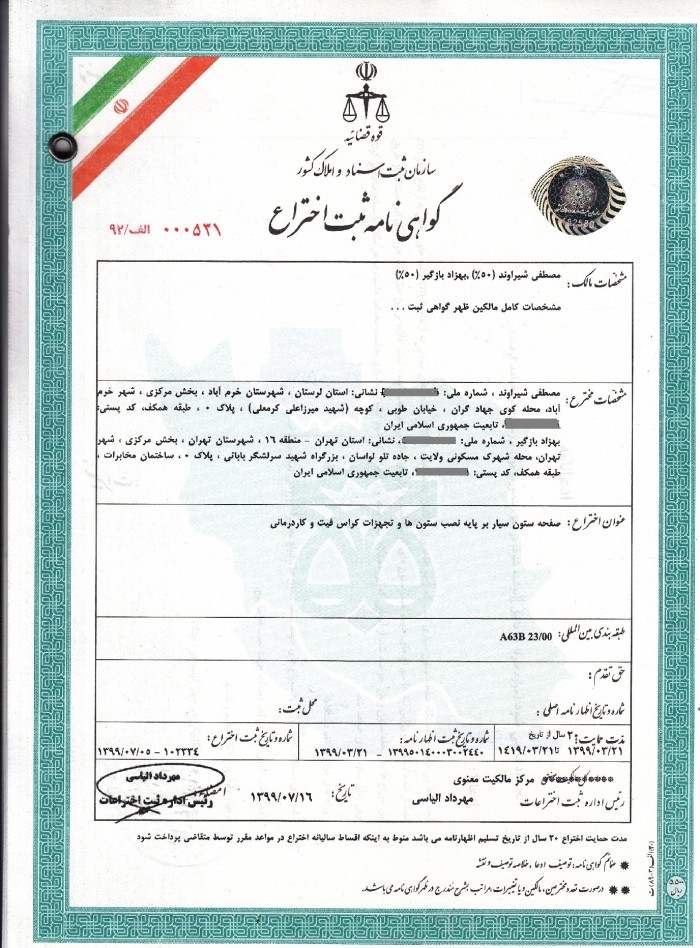 قوه قضائیه
سازمان ثبت اسناد و املاک کشور
گواهی نامه ثبت اختراع
۰۰۰۵۳۱ الف/۹۲
مشخصات مالک: مصطفی شیراوند (۵۰٪) ,بهزاد بازگیر (۵۰٪)
مشخصات کامل مالکین ظهر گواهی ثبت ...
مشخصات مخترع: مصطفی شیراوند ، شماره ملی: نشانی: استان لرستان ، شهرستان خرم آباد، بخش مرکزی ، شهر خرم
آباد، محله کوی جهاد گران ، خیابان طوبی ، کوچه (شهید میرزاعلی کرمعلی) ، پلاک ۰ ، طبقه همکف، کد پستی:
، تابعیت جمهوری اسلامی ایران
بهزاد بازگیر ، شماره ملی: ، نشانی: استان تهران - منطقه ۱۶ ، شهرستان تهران ، بخش مرکزی ، شهر
تهران، محله شهرک مسکونی ولایت ، جاده تلو لواسان ، بزرگراه شهید سرلشگر بابائی ، پلاک ۰ ، ساختمان مخابرات ،
طبقه همکف، کد پستی: ، تابعیت جمهوری اسلامی ایران
عنوان اختراع: صفحه ستون سیار بر پایه نصب ستون ها و تجهزات کراس فیت و کاردرمانی
طبقه بندی بین المللی: A63B 23/00
حق تقدم:
شماره و تاریخ اظهارنامه اصلی: محل ثبت:
مدت حمایت: ۲۰ سال از تاریخ
۱۳۹۹/۰۳/۲۱ تا ۱۴۱۹/۰۳/۲۱
شماره و تاریخ ثبت اظهارنامه:
۱۳۹۹۵۰۱۴۰۰۰۳۰۰۲۴۴۰ - ۱۳۹۹/۰۳/۲۱
شماره و تاریخ ثبت اختراع:
۱۰۲۳۳۴ - ۱۳۹۹/۰۷/۰۵
مرکز مالکیت معنوی
رئیس اداره ثبت اختراعات مهرداد الیاسی
تاریخ: ۱۳۹۹/۰۷/۱۶
امضاء:
مهرداد الیاسی
رئیس اداره ثبت اختراعات
مدت حمایت اختراع ۲۰ سال از تاریخ تسلیم اظهارنامه می باشد منوط به اینکه اقساط سالیانه اختراع در مواعد مقرر توسط متقاضی پرداخت شود
✹ ضمائم گواهی نامه: توصیف، ادعا، خلاصه توصیف و نقشه
✹✹ درصورت تعدد مخترعین، مالکین و یا تغییرات، مراتب بشرح مندرج در ظهر گواهی نامه می باشد.
۵۵۰ ریال